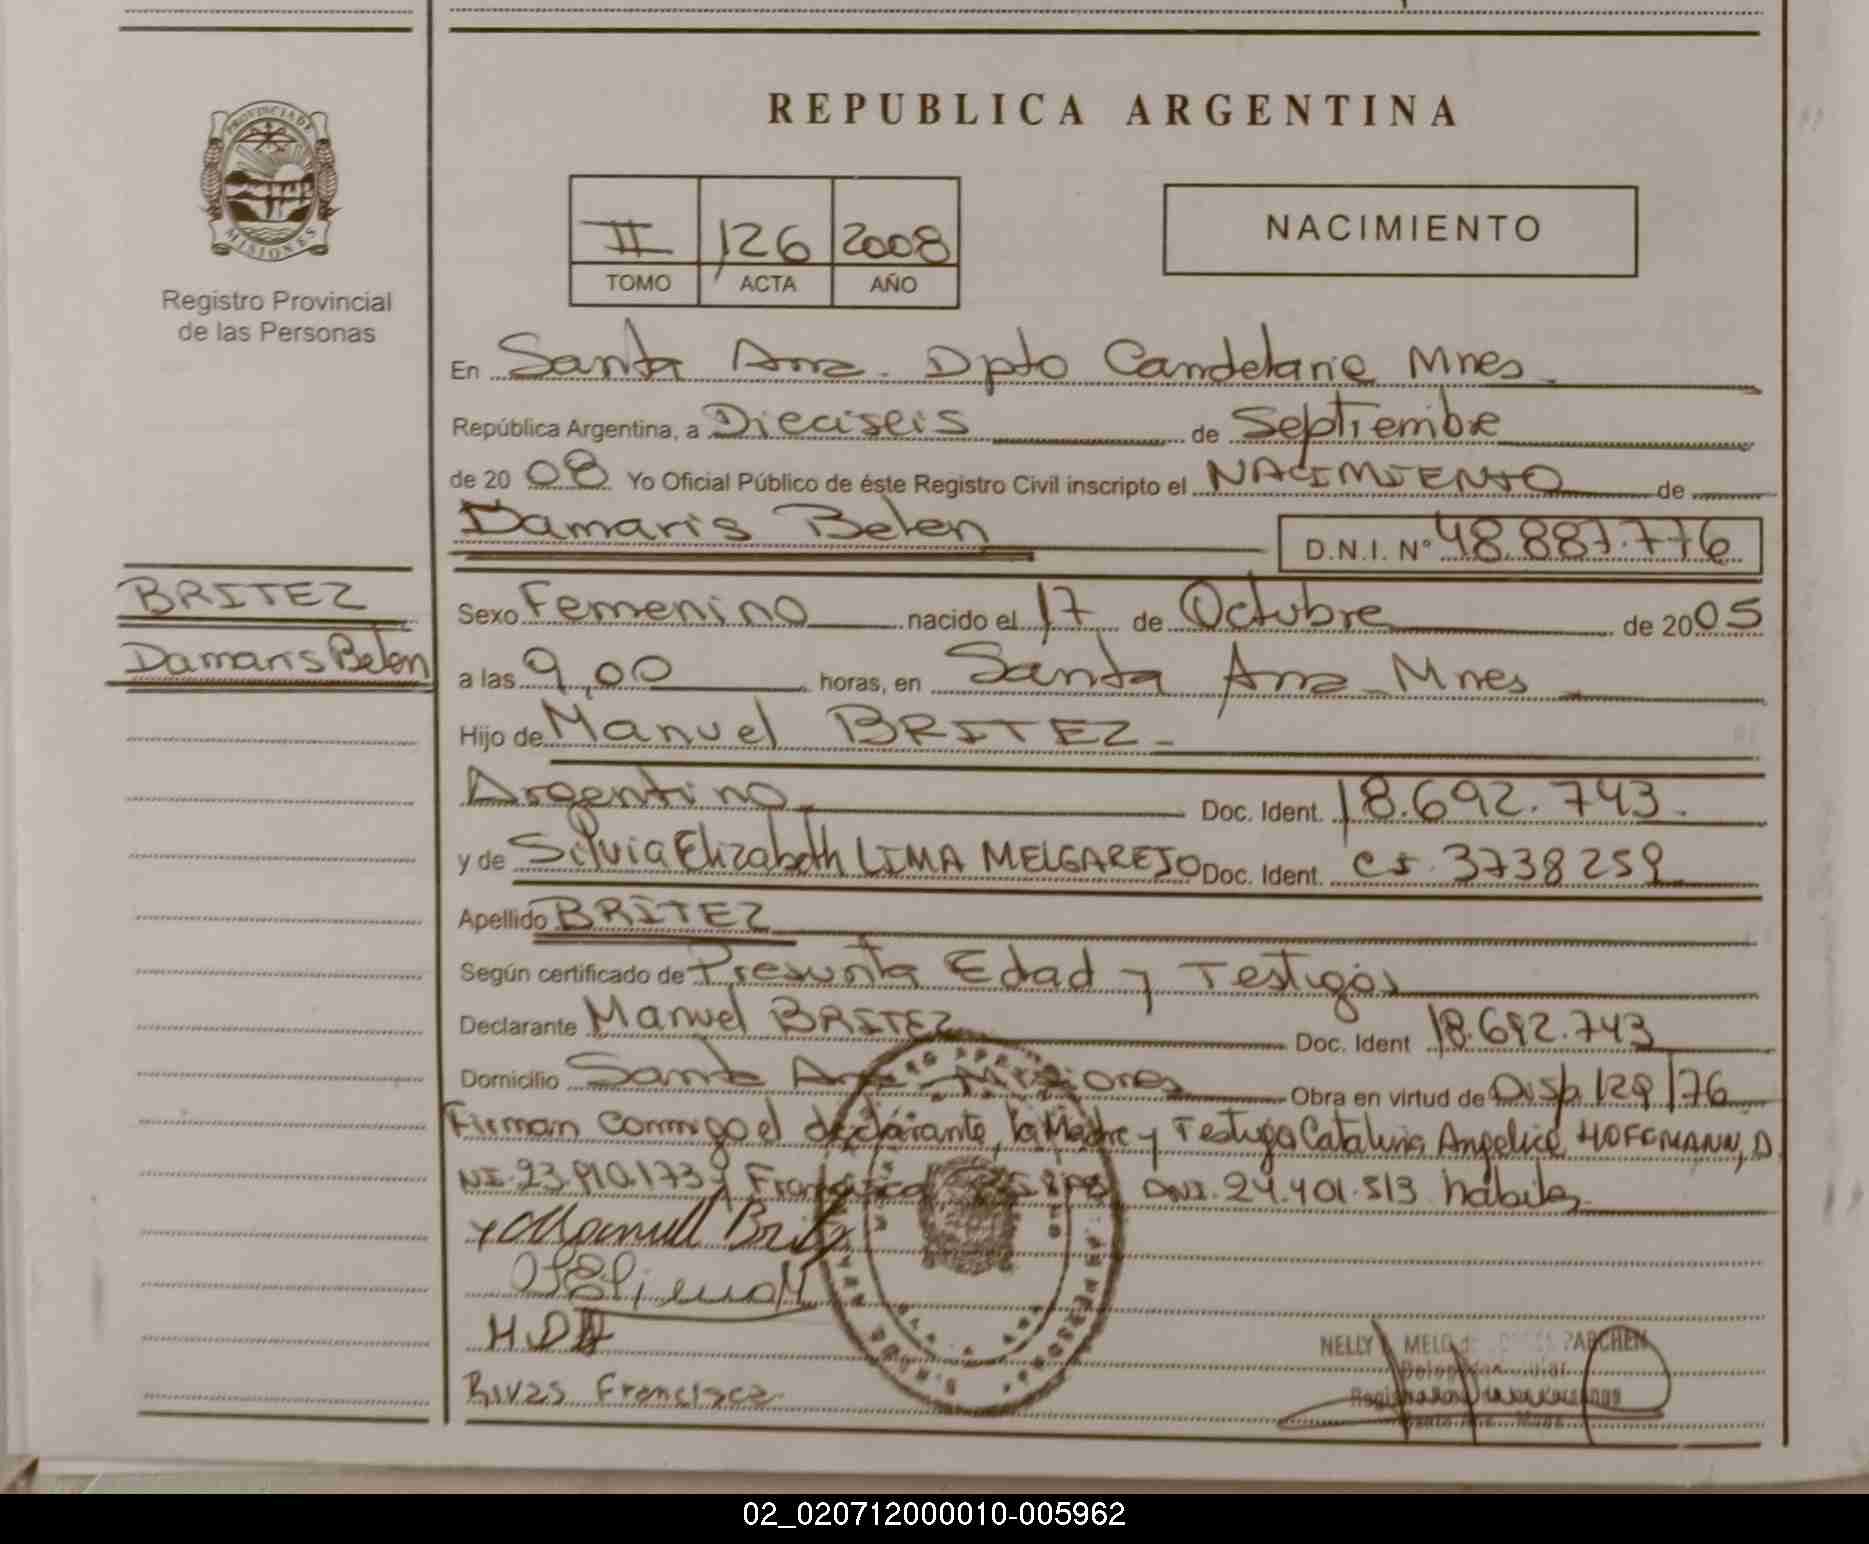 PROVINCIA DE
MISIONES
Registro Provincial
de las Personas
REPUBLICA ARGENTINA
II 126 2008
TOMO ACTA AÑO
NACIMIENTO
En Santa Ana. Dpto Candelaria Mnes.
República Argentina, a Dieciseis de Septiembre
de 2008 Yo Oficial Público de éste Registro Civil inscripto el NACIMIENTO de
Damaris Belen D.N.I. Nº 48.887.776
BRITEZ
Damaris Belen
Sexo Femenino nacido el 17 de Octubre de 2005
a las 9,00 horas, en Santa Ana - Mnes
Hijo de Manuel BRITEZ -
Argentino Doc. Ident. 18.692.743.
y de Silvia Elizabeth LIMA MELGAREJO Doc. Ident. CI. 3738259
Apellido BRITEZ
Según certificado de Presunta Edad y Testigos
Declarante Manuel BRITEZ Doc. Ident 18.692.743
Domicilio Santa Ana - Misiones Obra en virtud de Disp 129/76
Firman conmigo el declarante, la Madre y Testigo Catalina Angelica HOFFMANN, D
NI. 23.910.173 y Francisca DNI. 24.401.513 habiles
Manuel Britez
H.D.
Rivas Francisca
NELLY MELO
02_020712000010-005962